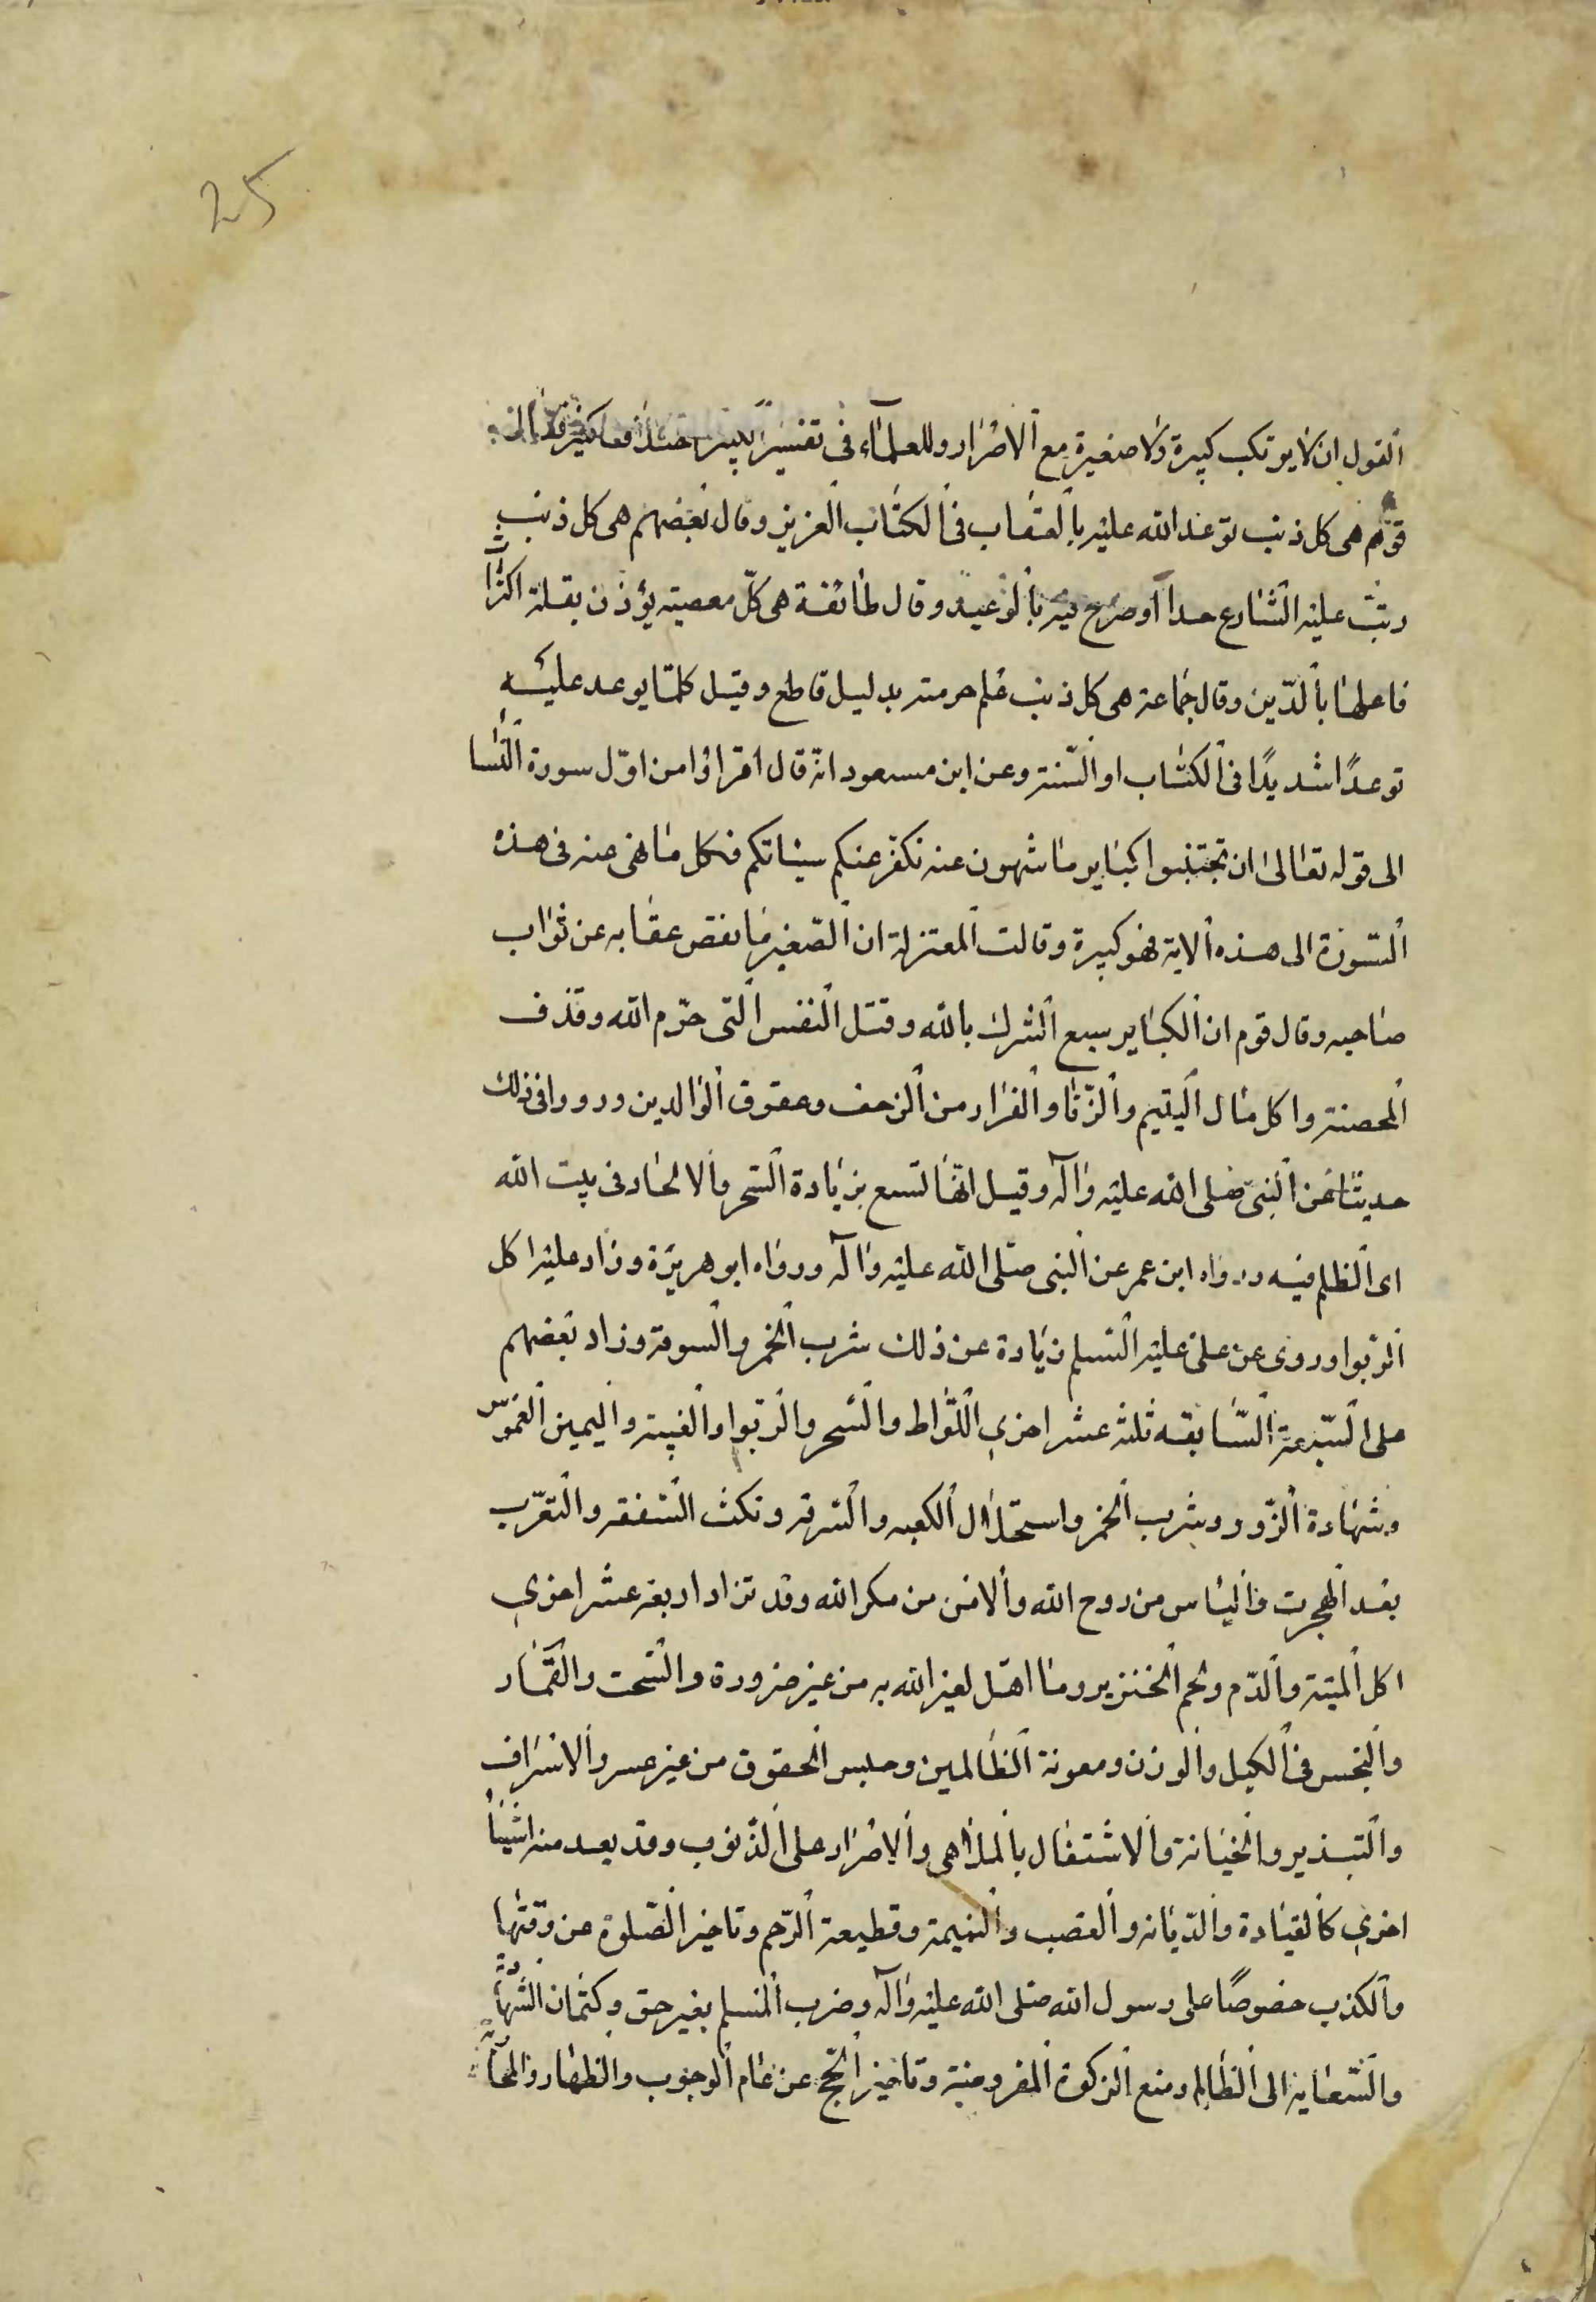 25
القول ان لا يرتكب كبيرة ولا صغيرة مع الاصرار وللعلماء فى تفسير الكبيرة اختلاف كثير فقال
قوم هى كل ذنب توعد الله عليه بالعقاب فى الكتاب العزيز وقال بعضهم هى كل ذنب
رتب عليه الشارع حدا أو صرح فيه بالوعيد وقال طائفة هى كلّ معصية يؤذن بقلة اكتراث
فاعلها بالدّين وقال جماعة هى كل ذنب علم حرمته بدليل قاطع وقيل كلما يوعد عليه
توعدًا شديدًا فى الكتاب او السّنة وعن ابن مسعود انّه قال اقراؤا من اوّل سورة النّسا
الى قوله تعالى ان تجتنبوا كباير ما تنهون عنه نكفّر عنكم سيئاتكم فكل ما نهى عنه فى هذه
السّورة الى هذه الاية فهو كبيرة وقالت المعتزلة ان الصّغير ما نقص عقابه عن ثواب
صاحبه وقال قوم ان الكباير سبع الشرك بالله وقتل النفس التى حرّم الله وقذف
المحصنة واكل مال اليتيم والزّنا والفرار من الزحف وعقوق الوالدين ورووا فى ذلك
حديثا عن النبى صلى الله عليه واله وقيل انها تسع بزيادة السحر والالحاد فى بيت الله
اى الظلم فيه ورواه ابن عمر عن النبى صلى الله عليه واله ورواه ابو هريرة وزاد عليه اكل
الربوا وروى عن على عليه السلم زيادة عن ذلك شرب الخمر والسرقة وزاد بعضهم
على السّبعة السّابقه ثلثه عشر اخرى اللّواط والسّحر والرّبوا والغيبة واليمين الغموس
وشهادة الزّور وشرب الخمر واستحلال الكعبه والسّرقه ونكث الصفقه والتعرّب
بعد الهجرت والياس من روح الله والامن من مكر الله وقد تزاد اربعه عشر اخرى
اكل الميتة والدّم ولحم الخنزير وما اهل لغير الله به من غير ضرورة والسّحت والقمار
والبخس فى الكيل والوزن ومعونة الظالمين وحبس الحقوق من غير عسر والاسراف
والتبذير والخيانة والاشتغال بالملاهى والاصرار على الذّنوب وقد يعد منه اشيا
اخرى كالقيادة والدّياثه والغصب والنميمة وقطيعة الرّحم وتاخير الصّلوة عن وقتها
والكذب خصوصًا على رسول الله صلى الله عليه واله وضرب المسلم بغير حق وكتمان الشهادة
والسّعاية الى الظالم ومنع الزكوة المفروضة وتاخير الحج عن عام الوجوب والظهار والمحاربة